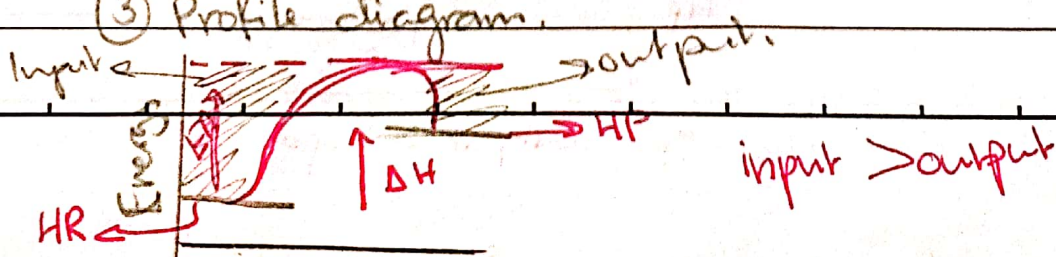 ③ Profile diagram.
Input
output.
Energy
EA
HP
ΔH
input > output
HR